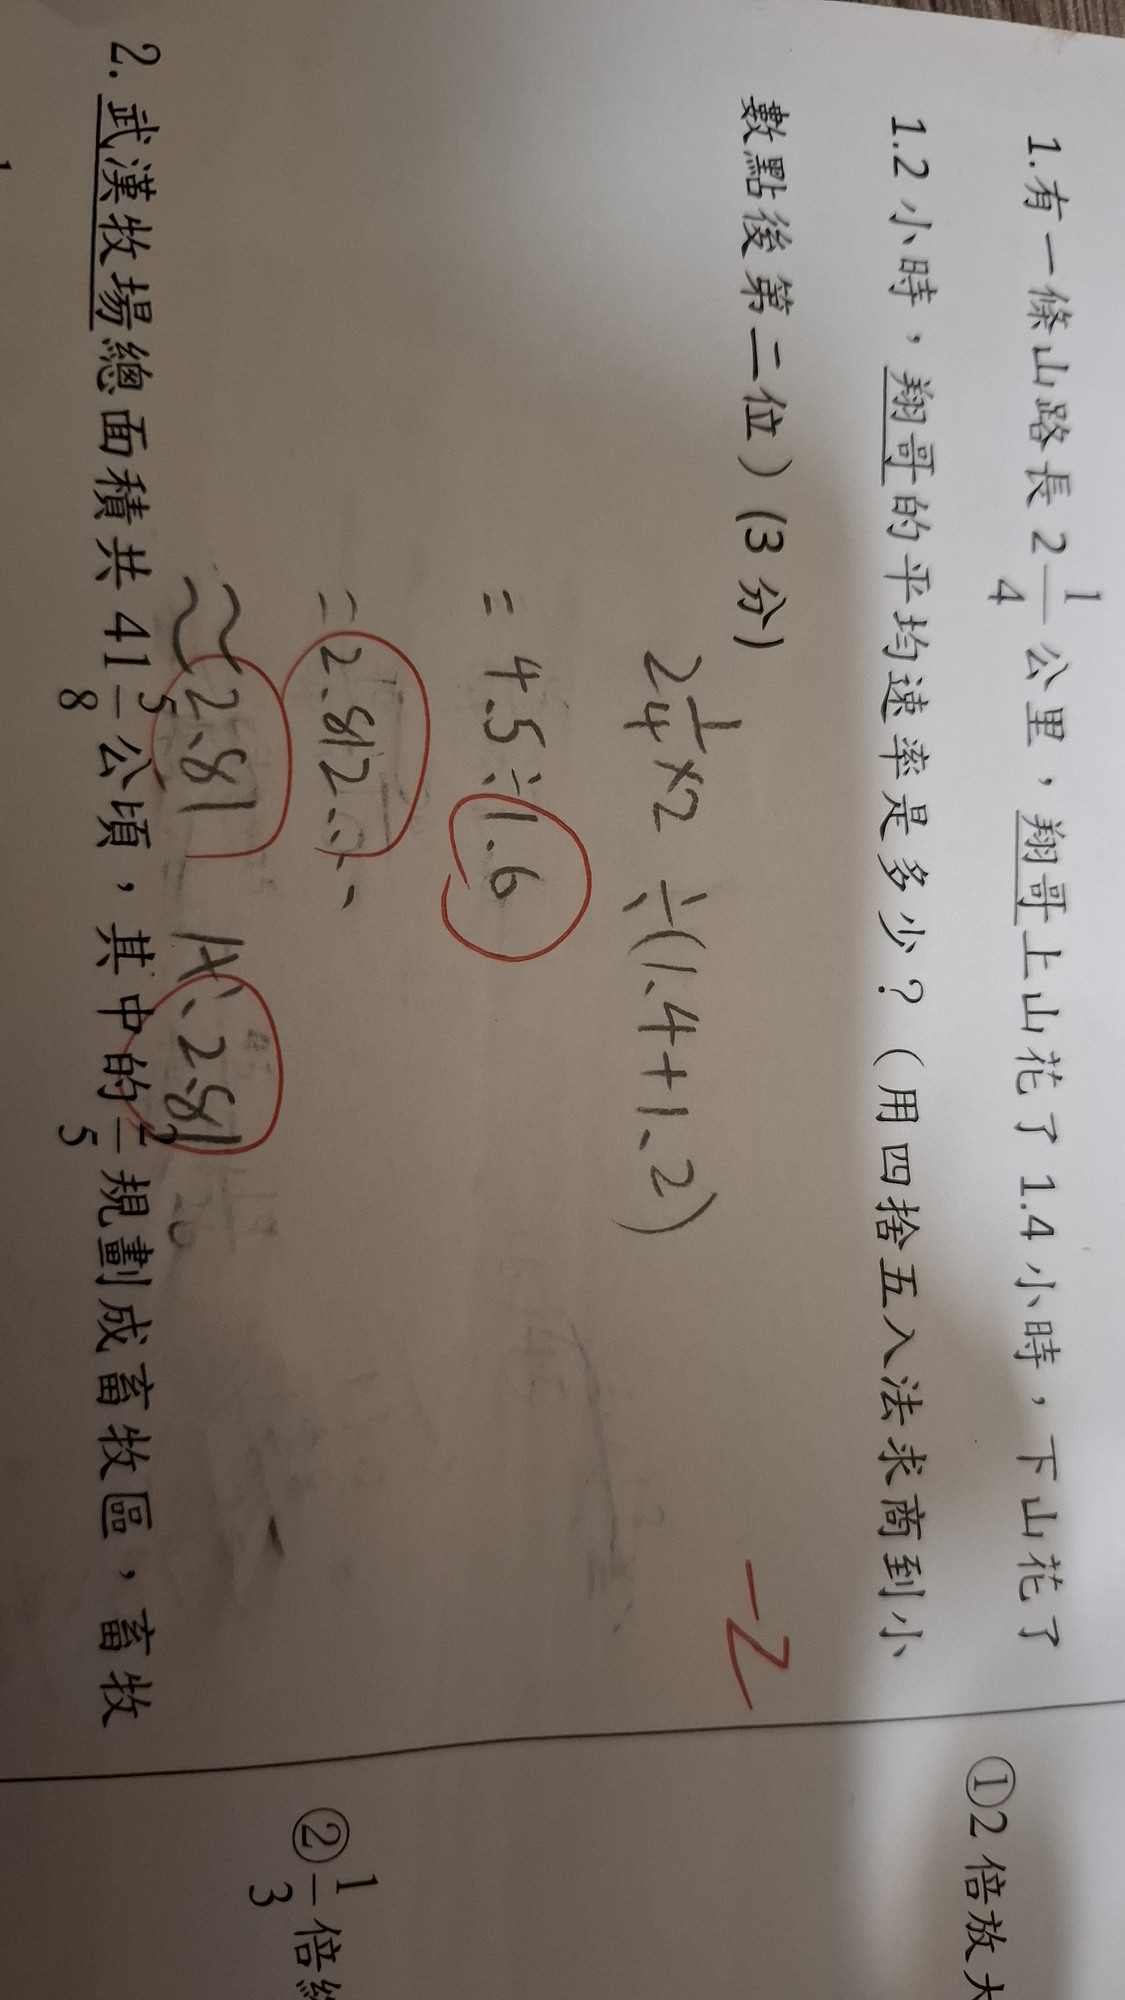 1.有一條山路長 2 1/4 公里，翔哥上山花了 1.4 小時，下山花了
1.2 小時，翔哥的平均速率是多少？（用四捨五入法求商到小
數點後第二位）(3 分)
2 1/4 × 2 ÷ (1.4 + 1.2)
= 4.5 ÷ 1.6
= 2.812...
≈ 2.81 A: 2.81
-2
2. 武漢牧場總面積共 41 5/8 公頃，其中的 2/5 規劃成畜牧區，畜牧
①2 倍放大
② 1/3 倍